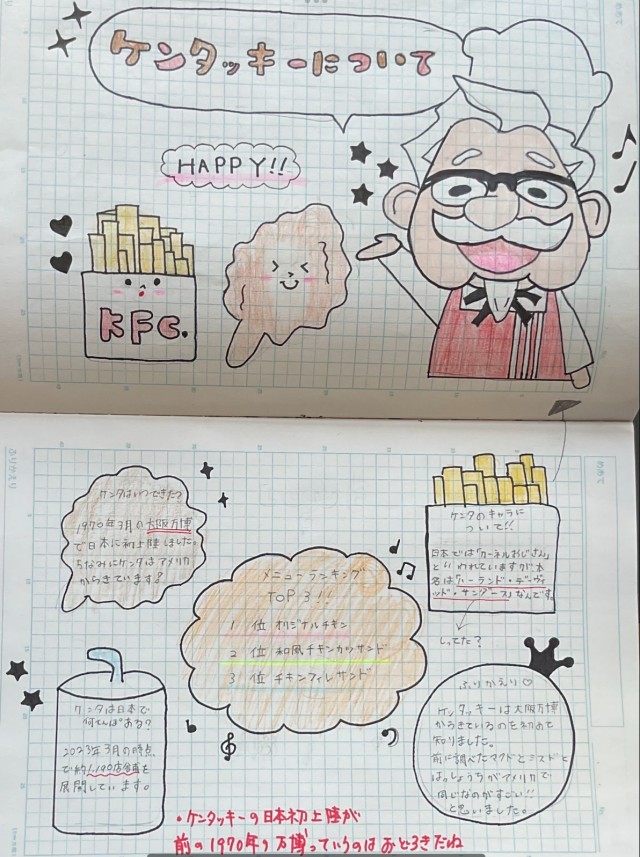 ケンタッキーについて
HAPPY!!
KFC.
ケンタはいつできた?
1970年3月の大阪万博
で日本に初上陸しました。
ちなみにケンタはアメリカ
からきています?
メニューランキング
TOP3!!
1位 オリジナルチキン
2位 和風チキンカツサンド
3位 チキンフィレサンド
ケンタのキャラに
ついて!!
日本では「カーネルおじさん」
といわれていますが本
名は「ハーランド・デーヴィ
ッド・サンダース」なんです。
しってた?
ケンタは日本で
何てんぽある?
2023年3月の時点
で約1,190店舗を
展開しています。
ふりかえり♡
ケンタッキーは大阪万博
からきているのを初めて
知りました。
前に調べたマクドとミスドと
はっしょうちがアメリカで
同じなのがすごい!!
と思いました。
・ケンタッキーの日本初上陸が
前の1970年の万博っていうのはおどろきだね
ふりかえり
めあて